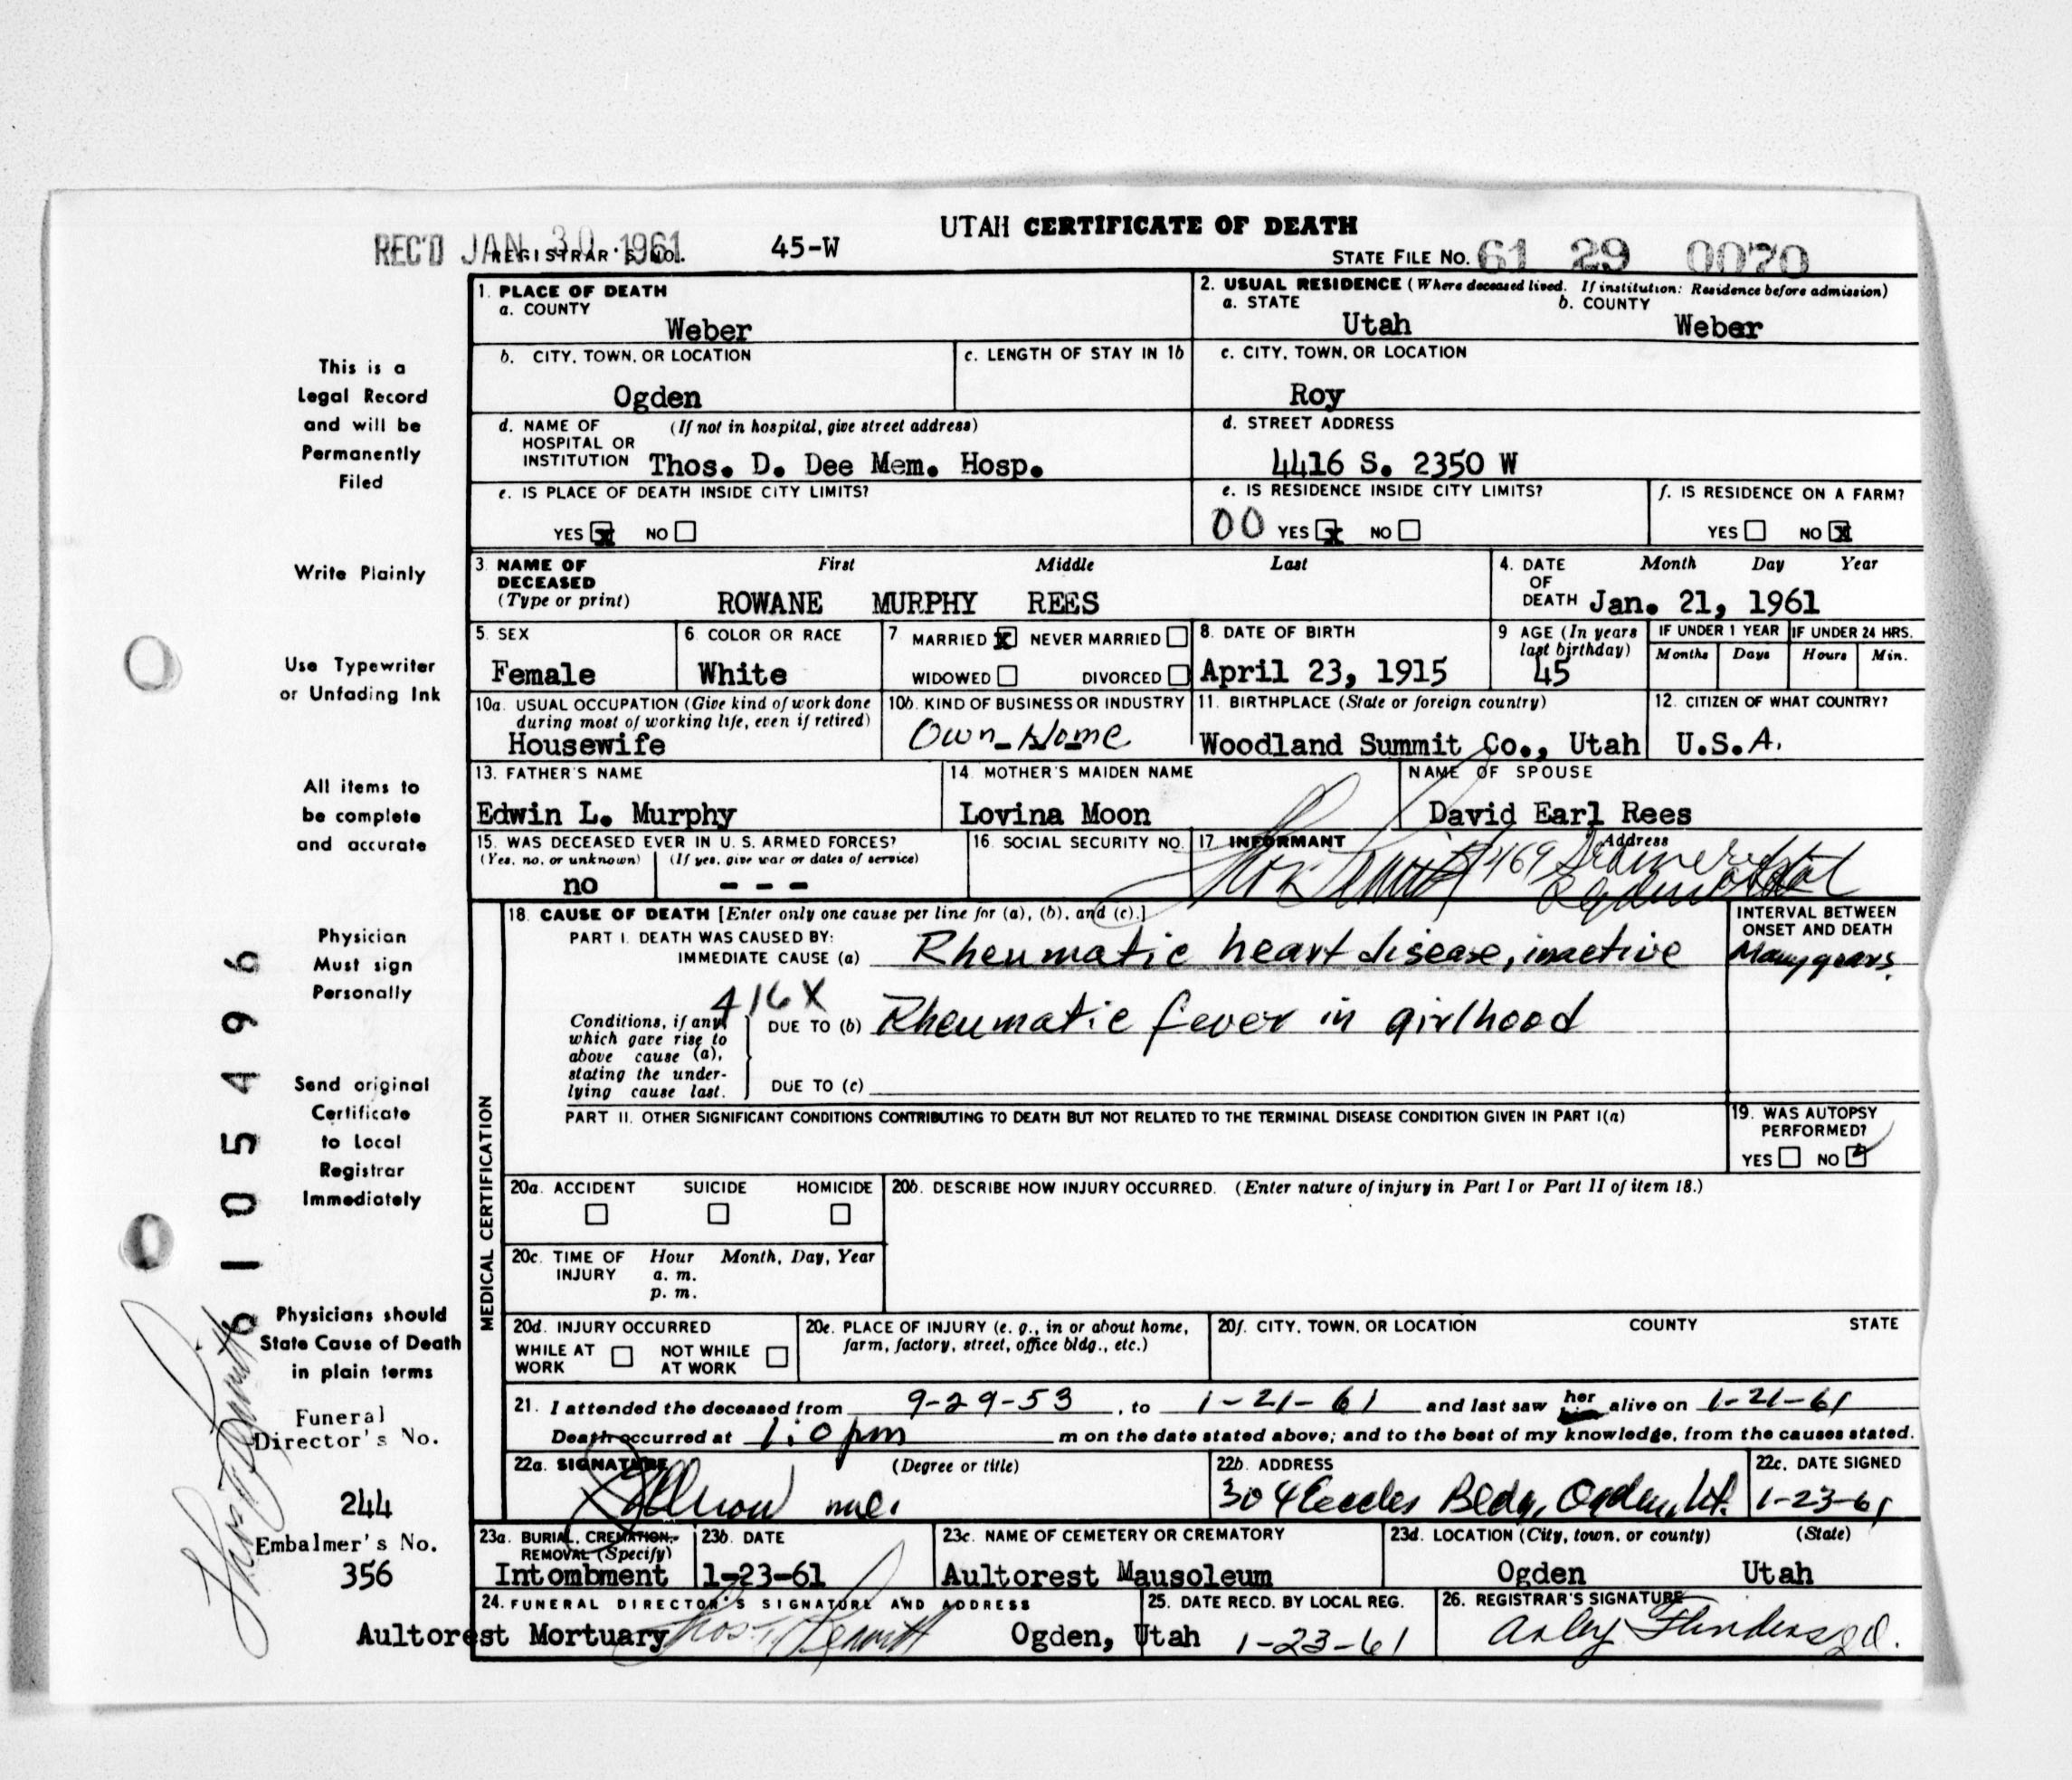 UTAH CERTIFICATE OF DEATH
REC'D JAN 30 1961 REGISTRAR'S NO. 45-W STATE FILE NO. 61 29 0070
1. PLACE OF DEATH
a. COUNTY
Weber
2. USUAL RESIDENCE (Where deceased lived. If institution: Residence before admission)
a. STATE b. COUNTY
Utah Weber
b. CITY, TOWN, OR LOCATION
Ogden
c. LENGTH OF STAY IN 1b
c. CITY, TOWN, OR LOCATION
Roy
d. NAME OF (If not in hospital, give street address)
HOSPITAL OR
INSTITUTION Thos. D. Dee Mem. Hosp.
d. STREET ADDRESS
4416 S. 2350 W
e. IS PLACE OF DEATH INSIDE CITY LIMITS?
YES x NO
e. IS RESIDENCE INSIDE CITY LIMITS?
00 YES x NO
f. IS RESIDENCE ON A FARM?
YES NO x
3. NAME OF First Middle Last
DECEASED
(Type or print) ROWANE MURPHY REES
4. DATE Month Day Year
OF
DEATH Jan. 21, 1961
5. SEX
Female
6. COLOR OR RACE
White
7 MARRIED x NEVER MARRIED
WIDOWED DIVORCED
8. DATE OF BIRTH
April 23, 1915
9 AGE (In years
last birthday)
45
IF UNDER 1 YEAR IF UNDER 24 HRS.
Months Days Hours Min.
10a. USUAL OCCUPATION (Give kind of work done
during most of working life, even if retired)
Housewife
10b. KIND OF BUSINESS OR INDUSTRY
Own Home
11. BIRTHPLACE (State or foreign country)
Woodland Summit Co., Utah
12. CITIZEN OF WHAT COUNTRY?
U.S.A.
13. FATHER'S NAME
Edwin L. Murphy
14. MOTHER'S MAIDEN NAME
Lovina Moon
NAME OF SPOUSE
David Earl Rees
15. WAS DECEASED EVER IN U. S. ARMED FORCES?
(Yes, no, or unknown) (If yes, give war or dates of service)
no - - -
16. SOCIAL SECURITY NO.
17. INFORMANT Address
18. CAUSE OF DEATH [Enter only one cause per line for (a), (b), and (c).]
PART I. DEATH WAS CAUSED BY:
IMMEDIATE CAUSE (a) Rheumatic heart disease, inactive
INTERVAL BETWEEN
ONSET AND DEATH
Many years.
416X
Conditions, if any,
which gave rise to
above cause (a),
stating the under-
lying cause last.
DUE TO (b) Rheumatic fever in girlhood
DUE TO (c)
PART II. OTHER SIGNIFICANT CONDITIONS CONTRIBUTING TO DEATH BUT NOT RELATED TO THE TERMINAL DISEASE CONDITION GIVEN IN PART I(a)
19. WAS AUTOPSY
PERFORMED?
YES NO
MEDICAL CERTIFICATION
20a. ACCIDENT SUICIDE HOMICIDE
20b. DESCRIBE HOW INJURY OCCURRED. (Enter nature of injury in Part I or Part II of item 18.)
20c. TIME OF Hour Month, Day, Year
INJURY a. m.
p. m.
20d. INJURY OCCURRED
WHILE AT NOT WHILE
WORK AT WORK
20e. PLACE OF INJURY (e. g., in or about home,
farm, factory, street, office bldg., etc.)
20f. CITY, TOWN, OR LOCATION COUNTY STATE
21. I attended the deceased from 9-29-53, to 1-21-61 and last saw her alive on 1-21-61
Death occurred at 1:0 pm m on the date stated above; and to the best of my knowledge, from the causes stated.
22a. SIGNATURE (Degree or title)
22b. ADDRESS
304 Eccles Bldg, Ogden, Ut.
22c. DATE SIGNED
1-23-61
23a. BURIAL, CREMATION,
REMOVAL (Specify)
Intombment
23b. DATE
1-23-61
23c. NAME OF CEMETERY OR CREMATORY
Aultorest Mausoleum
23d. LOCATION (City, town, or county) (State)
Ogden Utah
24. FUNERAL DIRECTOR'S SIGNATURE AND ADDRESS
Aultorest Mortuary Ogden, Utah
25. DATE RECD. BY LOCAL REG.
1-23-61
26. REGISTRAR'S SIGNATURE
This is a
Legal Record
and will be
Permanently
Filed
Write Plainly
Use Typewriter
or Unfading Ink
All items to
be complete
and accurate
Physician
Must sign
Personally
Send original
Certificate
to Local
Registrar
Immediately
Physicians should
State Cause of Death
in plain terms
Funeral
Director's No.
244
Embalmer's No.
356
6105496